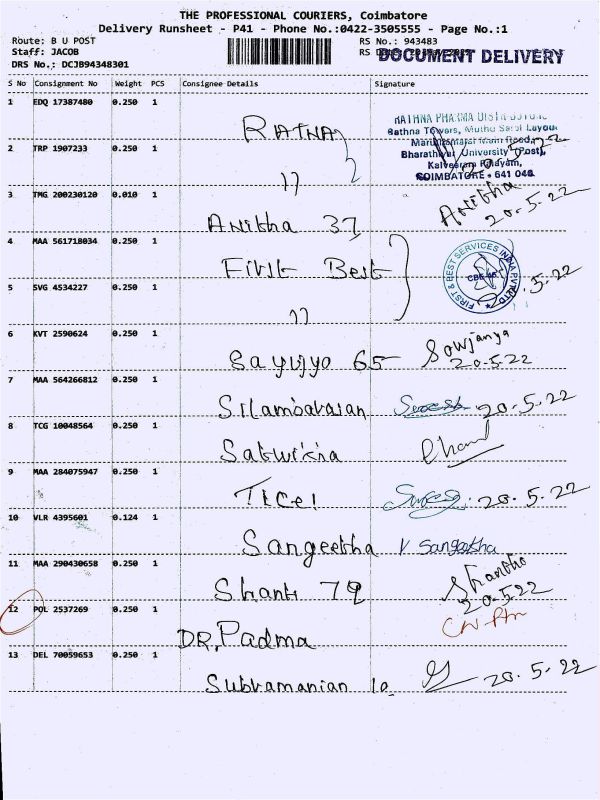 THE PROFESSIONAL COURIERS, Coimbatore
Delivery Runsheet - P41 - Phone No.:0422-3505555 - Page No.:1
Route: B U POST
Staff: JACOB
DRS No.: DCJB94348301
RS No.: 943483
RS
DOCUMENT DELIVERY
S No Consignment No Weight PCS Consignee Details Signature
1 EDQ 17387480 0.250 1 RATNA
RATHNA PHARMA
Rathna Towers, Muthu Layout
Main Road,
Bharathiyar University (Post),
Kalveeram Palayam,
COIMBATORE - 641 046
20.5.22
2 TRP 1907233 0.250 1 ,,
3 TMG 200230120 0.010 1 Anitha 37 Anitha
20.5.22
4 MAA 561718034 0.250 1 First Best
FIRST & BEST SERVICES INDIA PVT LTD
CBE-46
.5.22
5 SVG 4534227 0.250 1 ,,
6 KVT 2590624 0.250 1 Sayujyo 65 Sowjanya
20.5.22
7 MAA 564266812 0.250 1 Silambarasan Suresh 20.5.22
8 TCG 10048564 0.250 1 Satwikia
9 MAA 284075947 0.250 1 TICEL 20.5.22
10 VLR 4395601 0.124 1 Sangeetha V Sangeetha
11 MAA 290430658 0.250 1 Shanti 79 Shantho
20.5.22
12 POL 2537269 0.250 1 DR. Padma
13 DEL 70059653 0.250 1 Subramanian 10 20.5.22